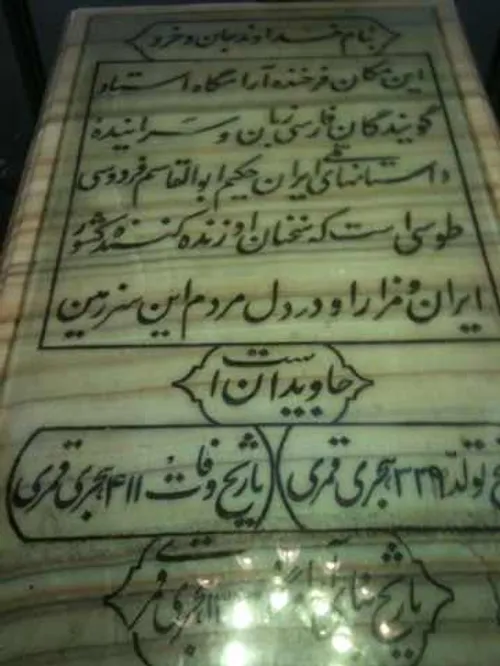 بنام خداوند جان و خرد
این مکان فرخنده آرامگاه استاد
گویندگان فارسی زبان و سراینده
داستانهای ملی ایران حکیم ابوالقاسم فردوسی
طوسی است که سخنان او زنده کننده کشور
ایران و مزار او در دل مردم این سرزمین
جاویدان است
تولد ۳۲۹ هجری قمری
تاریخ وفات ۴۱۱ هجری قمری
تاریخ بنای هجری قمری